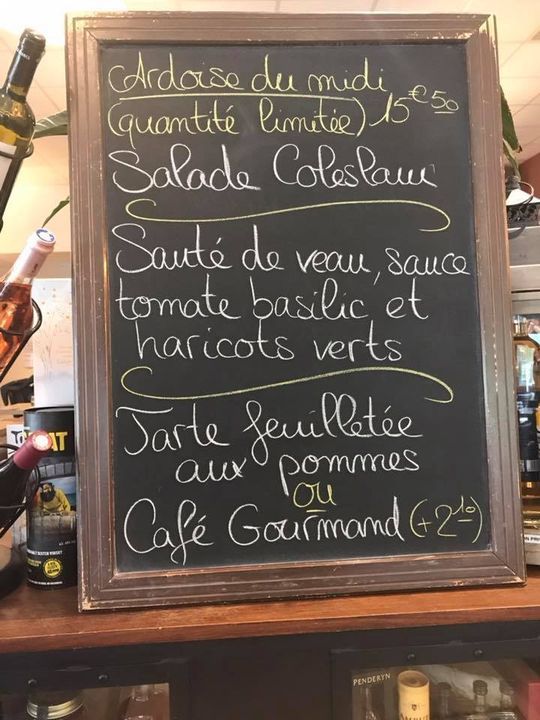 Ardoise du midi
(quantité limitée) 15€50
Salade Coleslaw
Sauté de veau, sauce
tomate basilic et
haricots verts
Tarte feuilletée
aux pommes
ou
Café Gourmand (+2.10)
PENDERYN